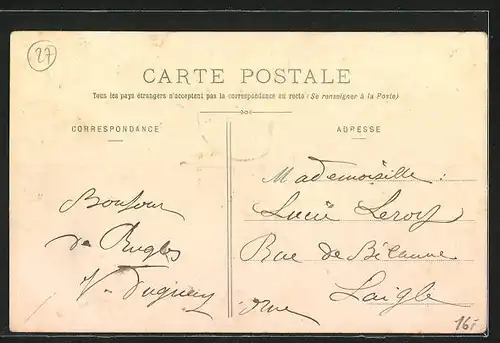 27
CARTE POSTALE
Tous les pays étrangers n'acceptent pas la correspondance au recto (Se renseigner à la Poste)
CORRESPONDANCE
ADRESSE
Mademoiselle :
Lucie Leroy
Rue de Bécanne
Laigle
Orne
Bonjour
de Rugles
V. Duguay
16.-